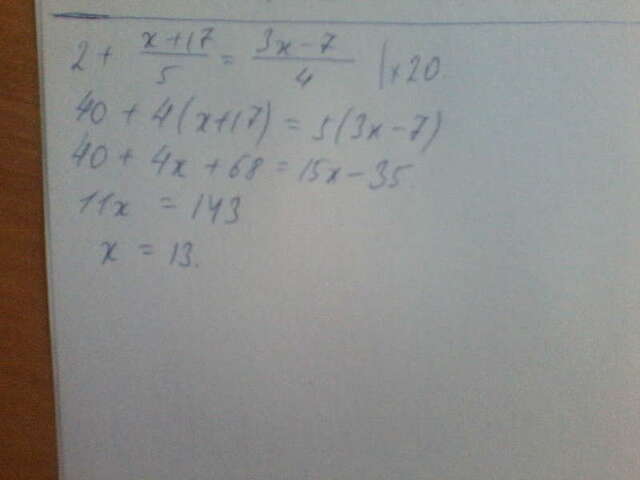 2 + (x+17)/5 = (3x-7)/4 | x20.
40 + 4(x+17) = 5(3x-7)
40 + 4x + 68 = 15x - 35.
11x = 143
x = 13.